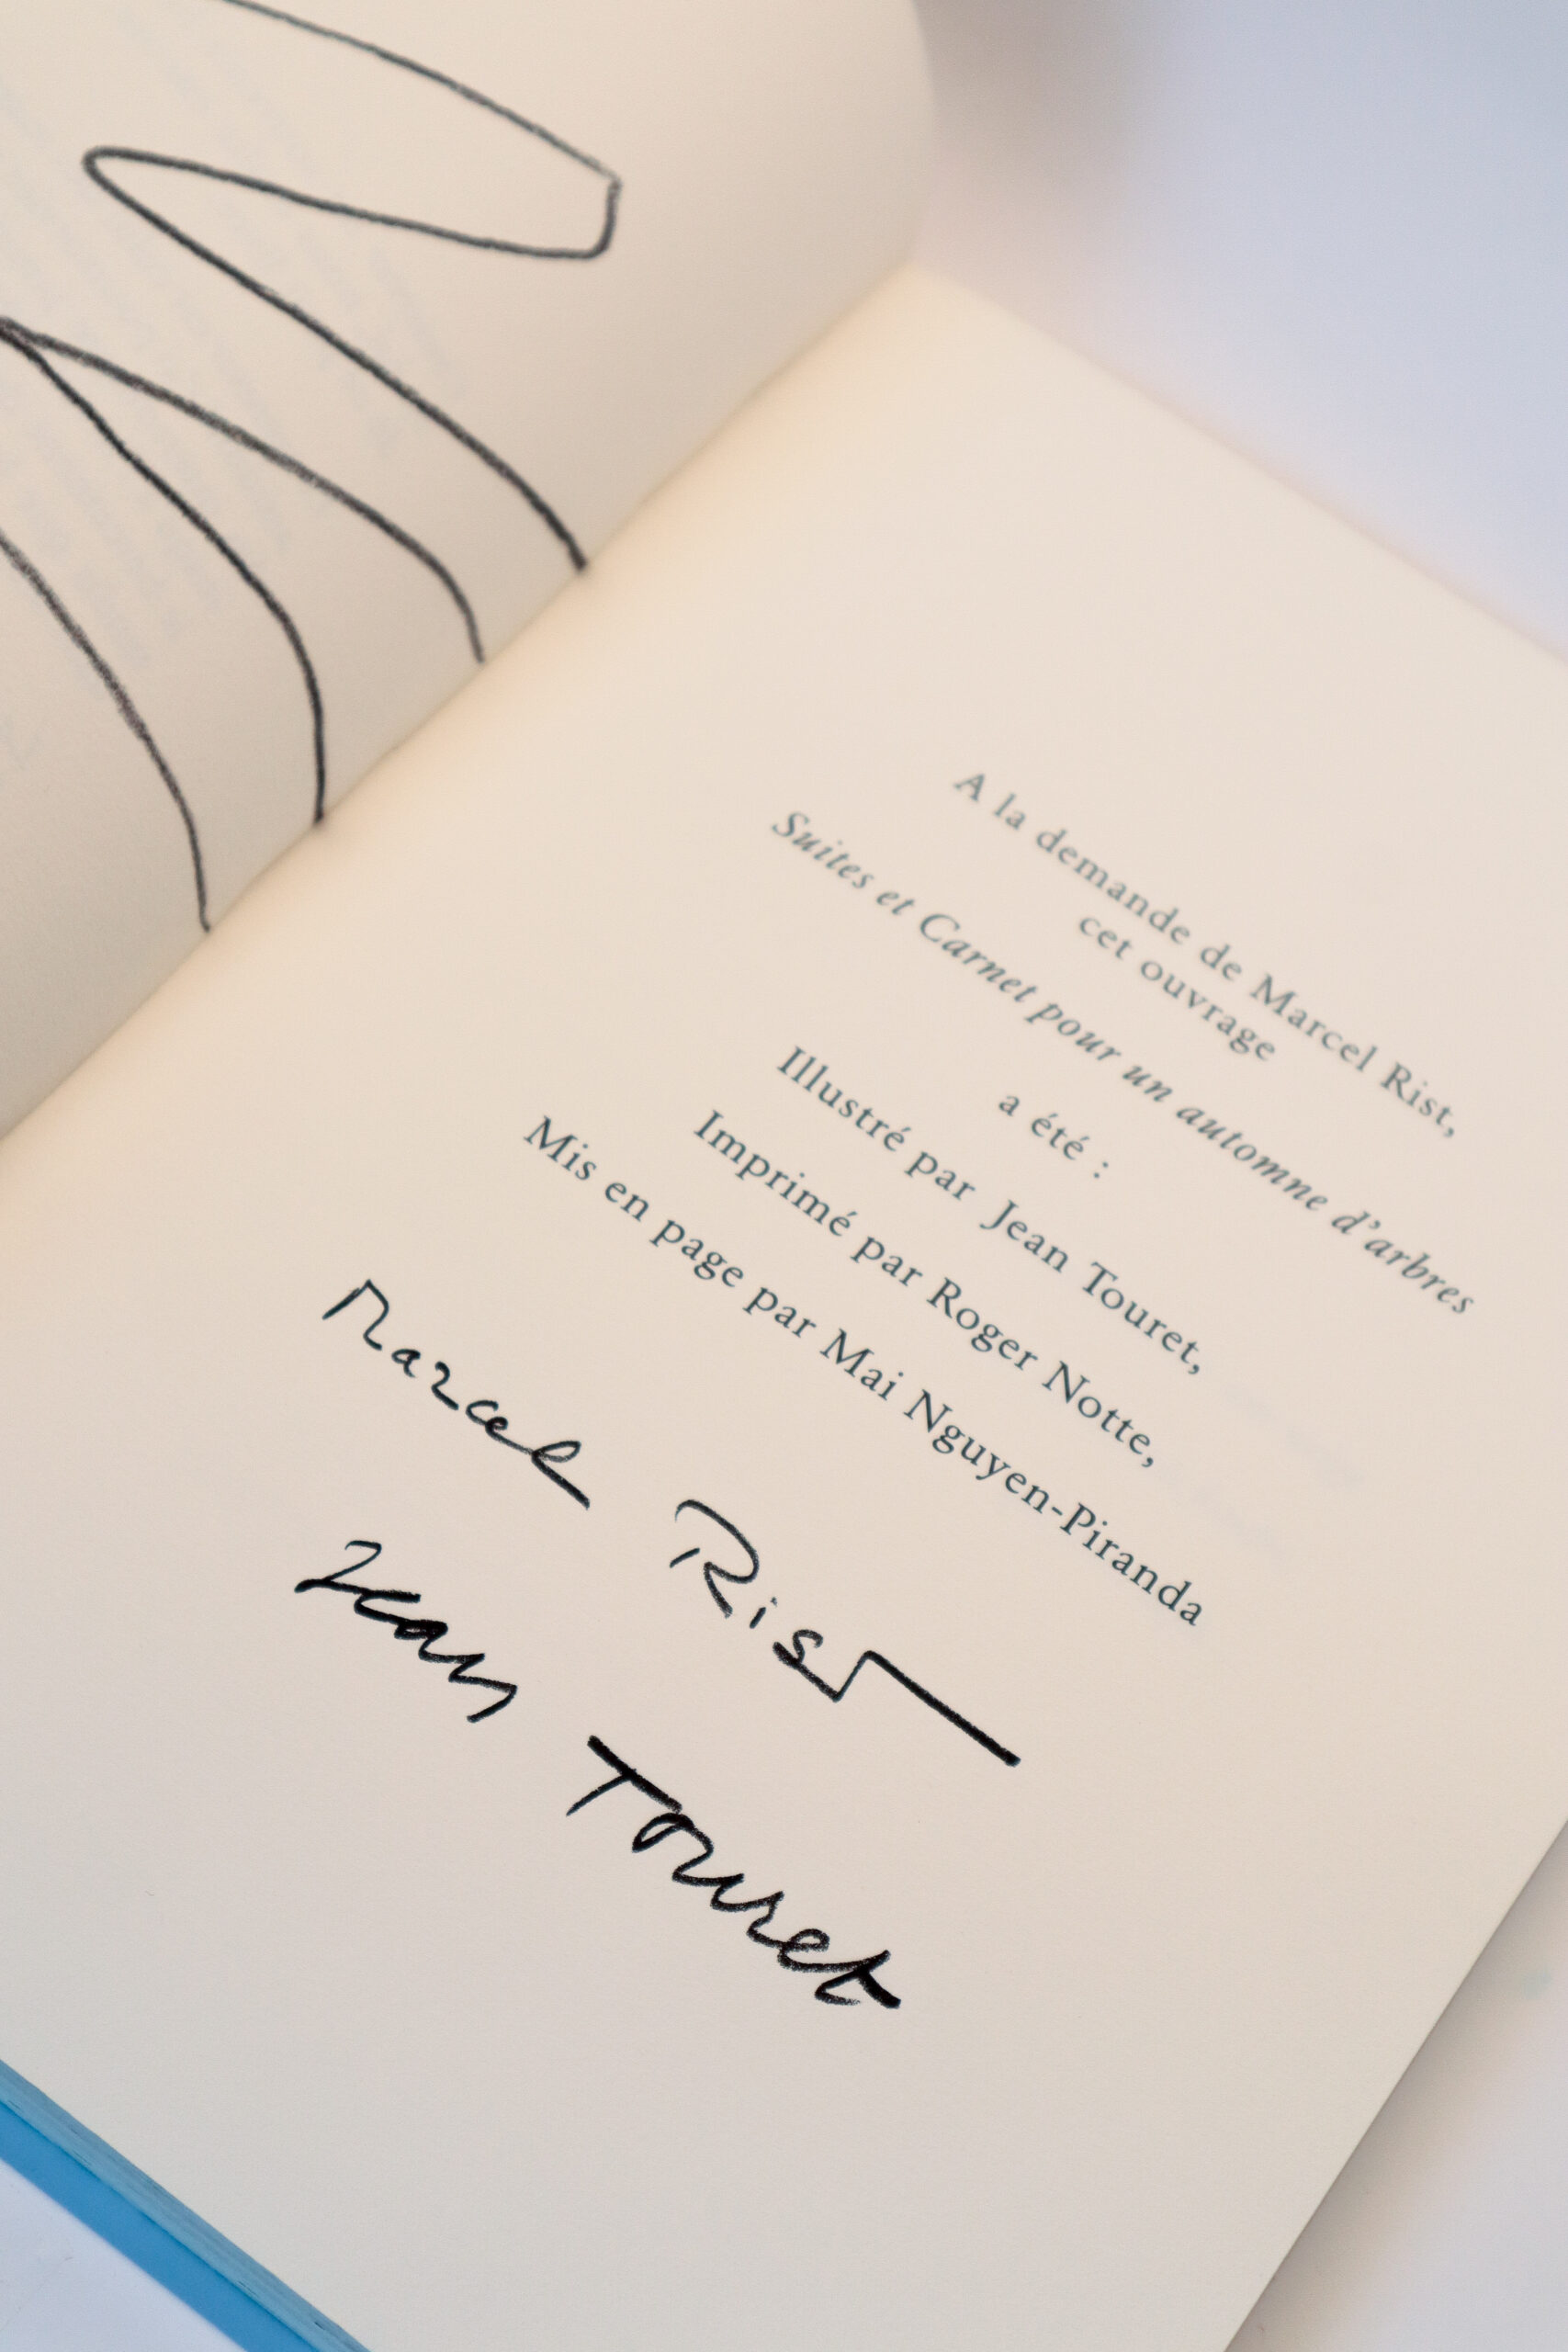 A la demande de Marcel Rist,
cet ouvrage
Suites et Carnet pour un automne d'arbres
a été :
Illustré par Jean Touret,
Imprimé par Roger Notte,
Mis en page par Mai Nguyen-Piranda
Marcel Rist
Jean Touret